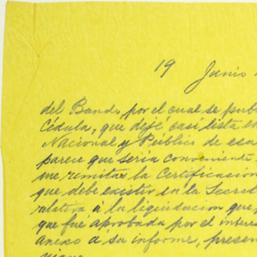 19 Junio
del Bando, por el cual se publ
Cédula, que dejé casi lista en
Nacional y Público de esa
parece que sería conveniente
me remitas la Certificacion
que debe existir en la Secre
relativa à la liquidacion que
que fue aprobada por el inte
anexo a su informe, presen